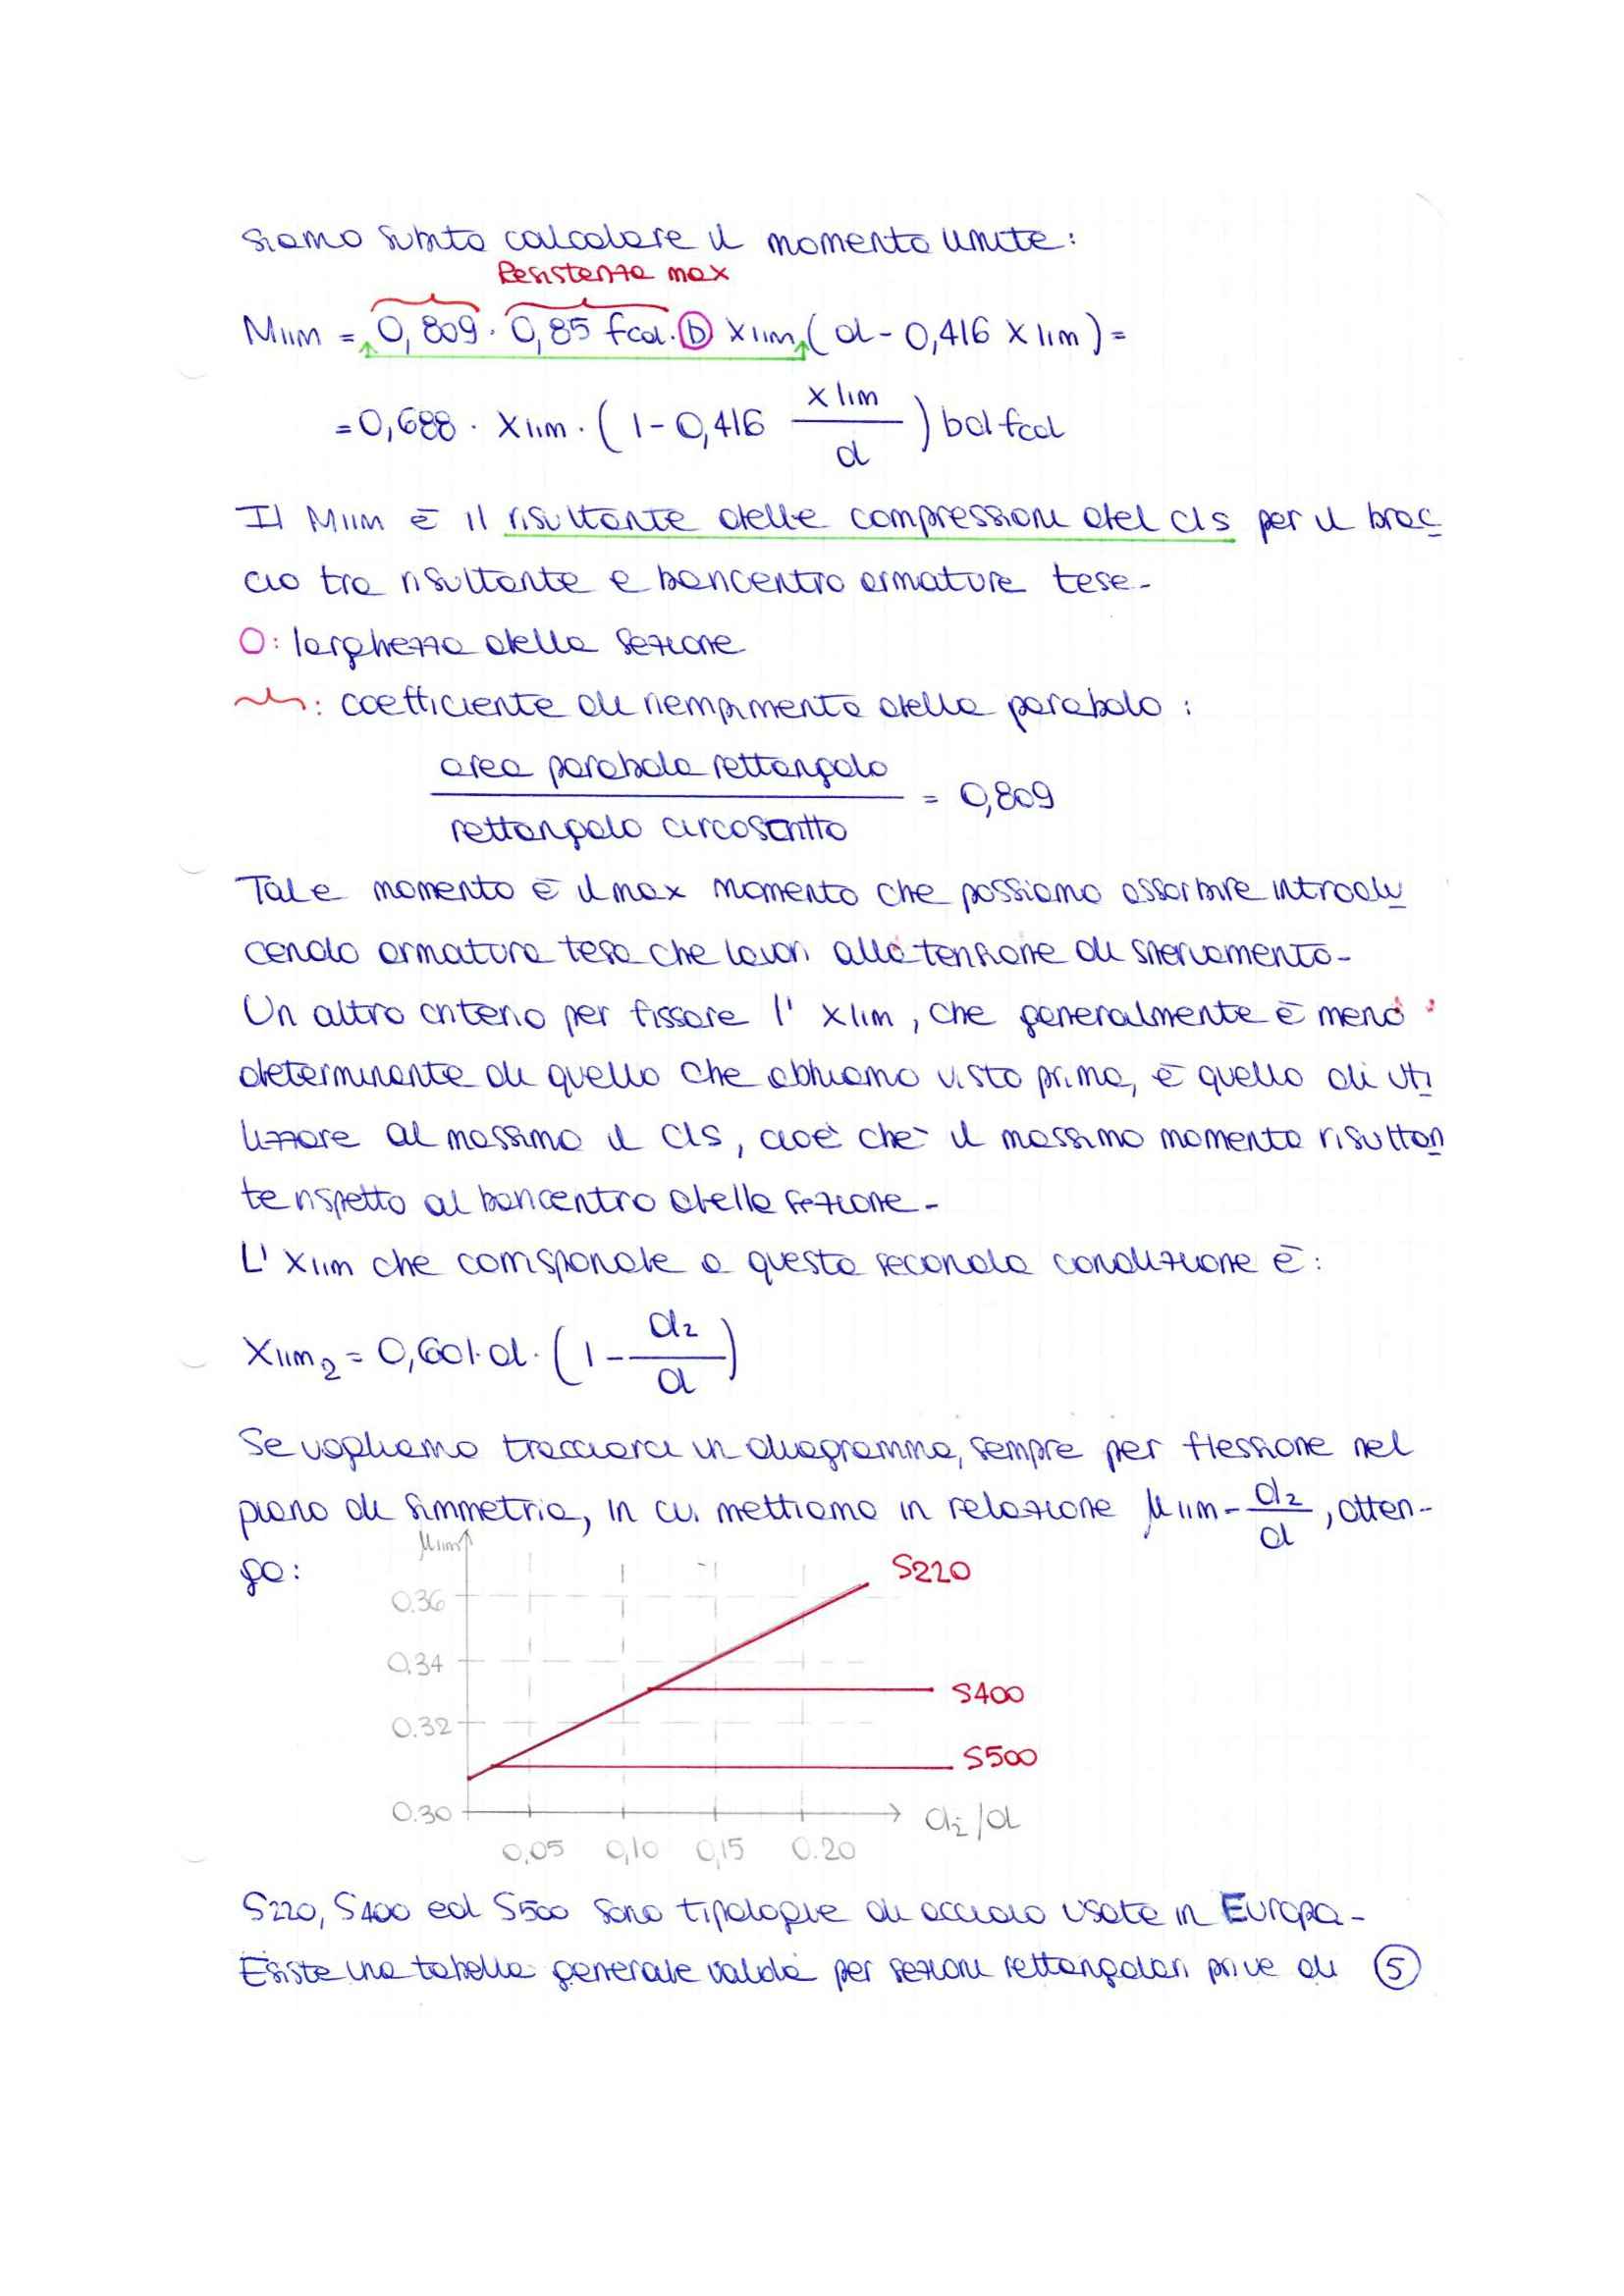 siamo subito calcolare il momento limite:
Resistenza max
Mlim = 0,809 · 0,85 fcd · b xlim (d - 0,416 xlim) =
= 0,688 · xlim · (1 - 0,416 xlim/d) bd fcd
Il Mlim è il risultante delle compressioni del cls per il brac
cio tra risultante e baricentro armature tese-
O: larghezza della sezione
: coefficiente di riempimento della parabola:
area parabola rettangolo
= 0,809
rettangolo circoscritto
Tale momento è il max momento che possiamo assorbire introdu
cendo armatura tesa che lavori alla tensione di snervamento-
Un altro criterio per fissare l' xlim, che generalmente è meno
determinante di quello che abbiamo visto prima, è quello di uti
lizzare al massimo il cls, cioè che il massimo momento risultan
te rispetto al baricentro della sezione-
L' xlim che corrisponde a questa seconda condizione è:
xlim2 = 0,601·d·(1 - d2/d)
Se vogliamo tracciarci un diagramma, sempre per flessione nel
piano di simmetria, in cui mettiamo in relazione μlim - d2/d, otten-
go:
μlim
S220
0.36
0.34
S400
0.32
S500
0.30
d2/d
0,05 0,10 0,15 0.20
S220, S400 ed S500 sono tipologie di acciaio usate in Europa-
Esiste una tabella generale valida per sezioni rettangolari prive di 5